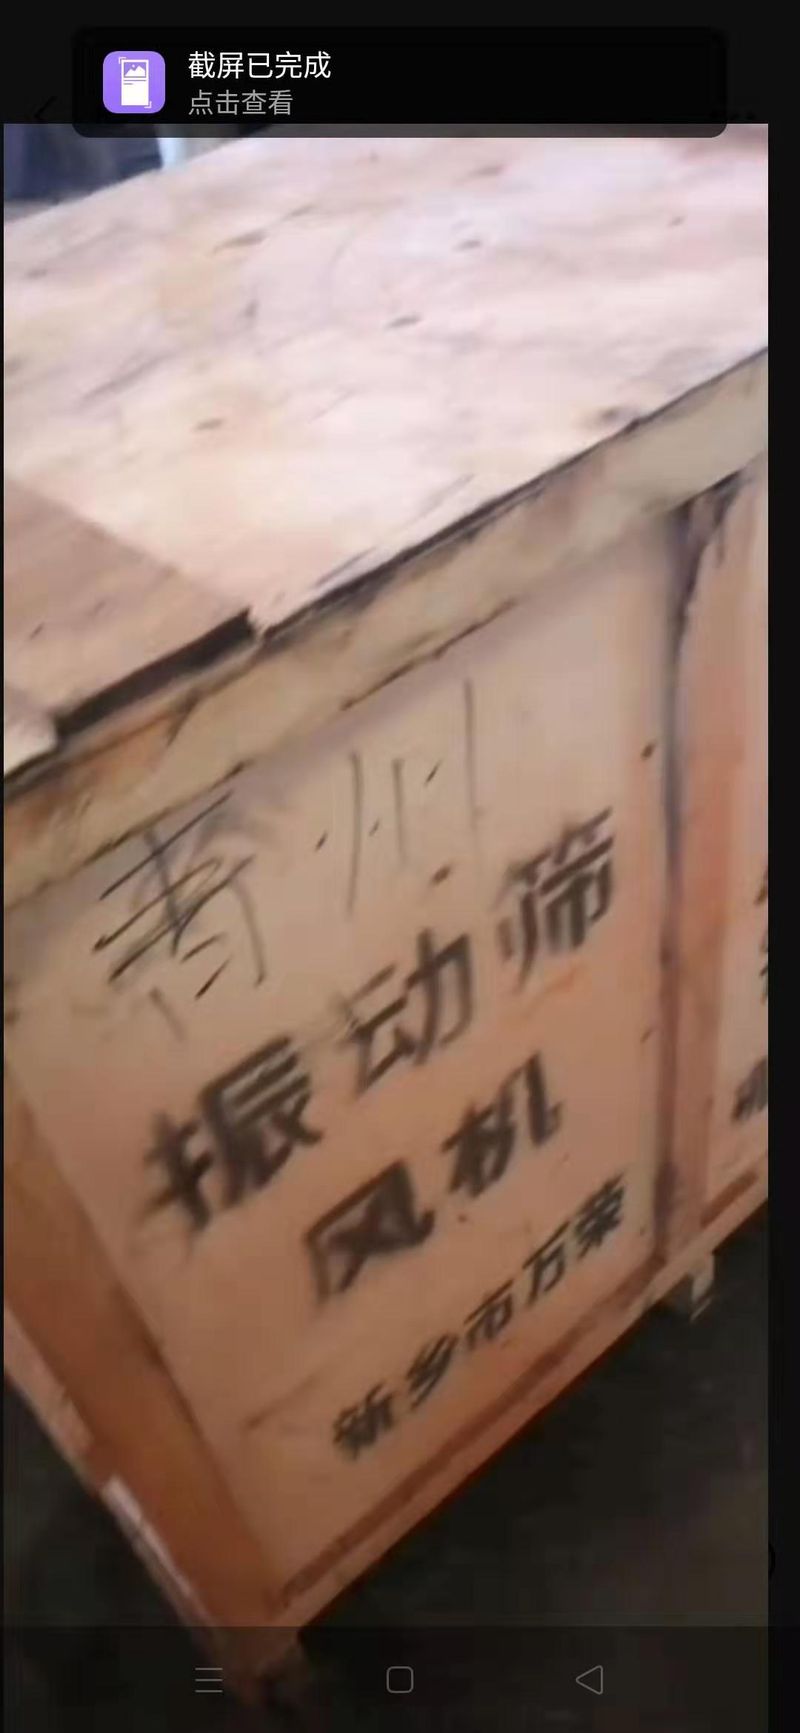 截屏已完成
点击查看
青州
振动筛
风机
新乡市万荣